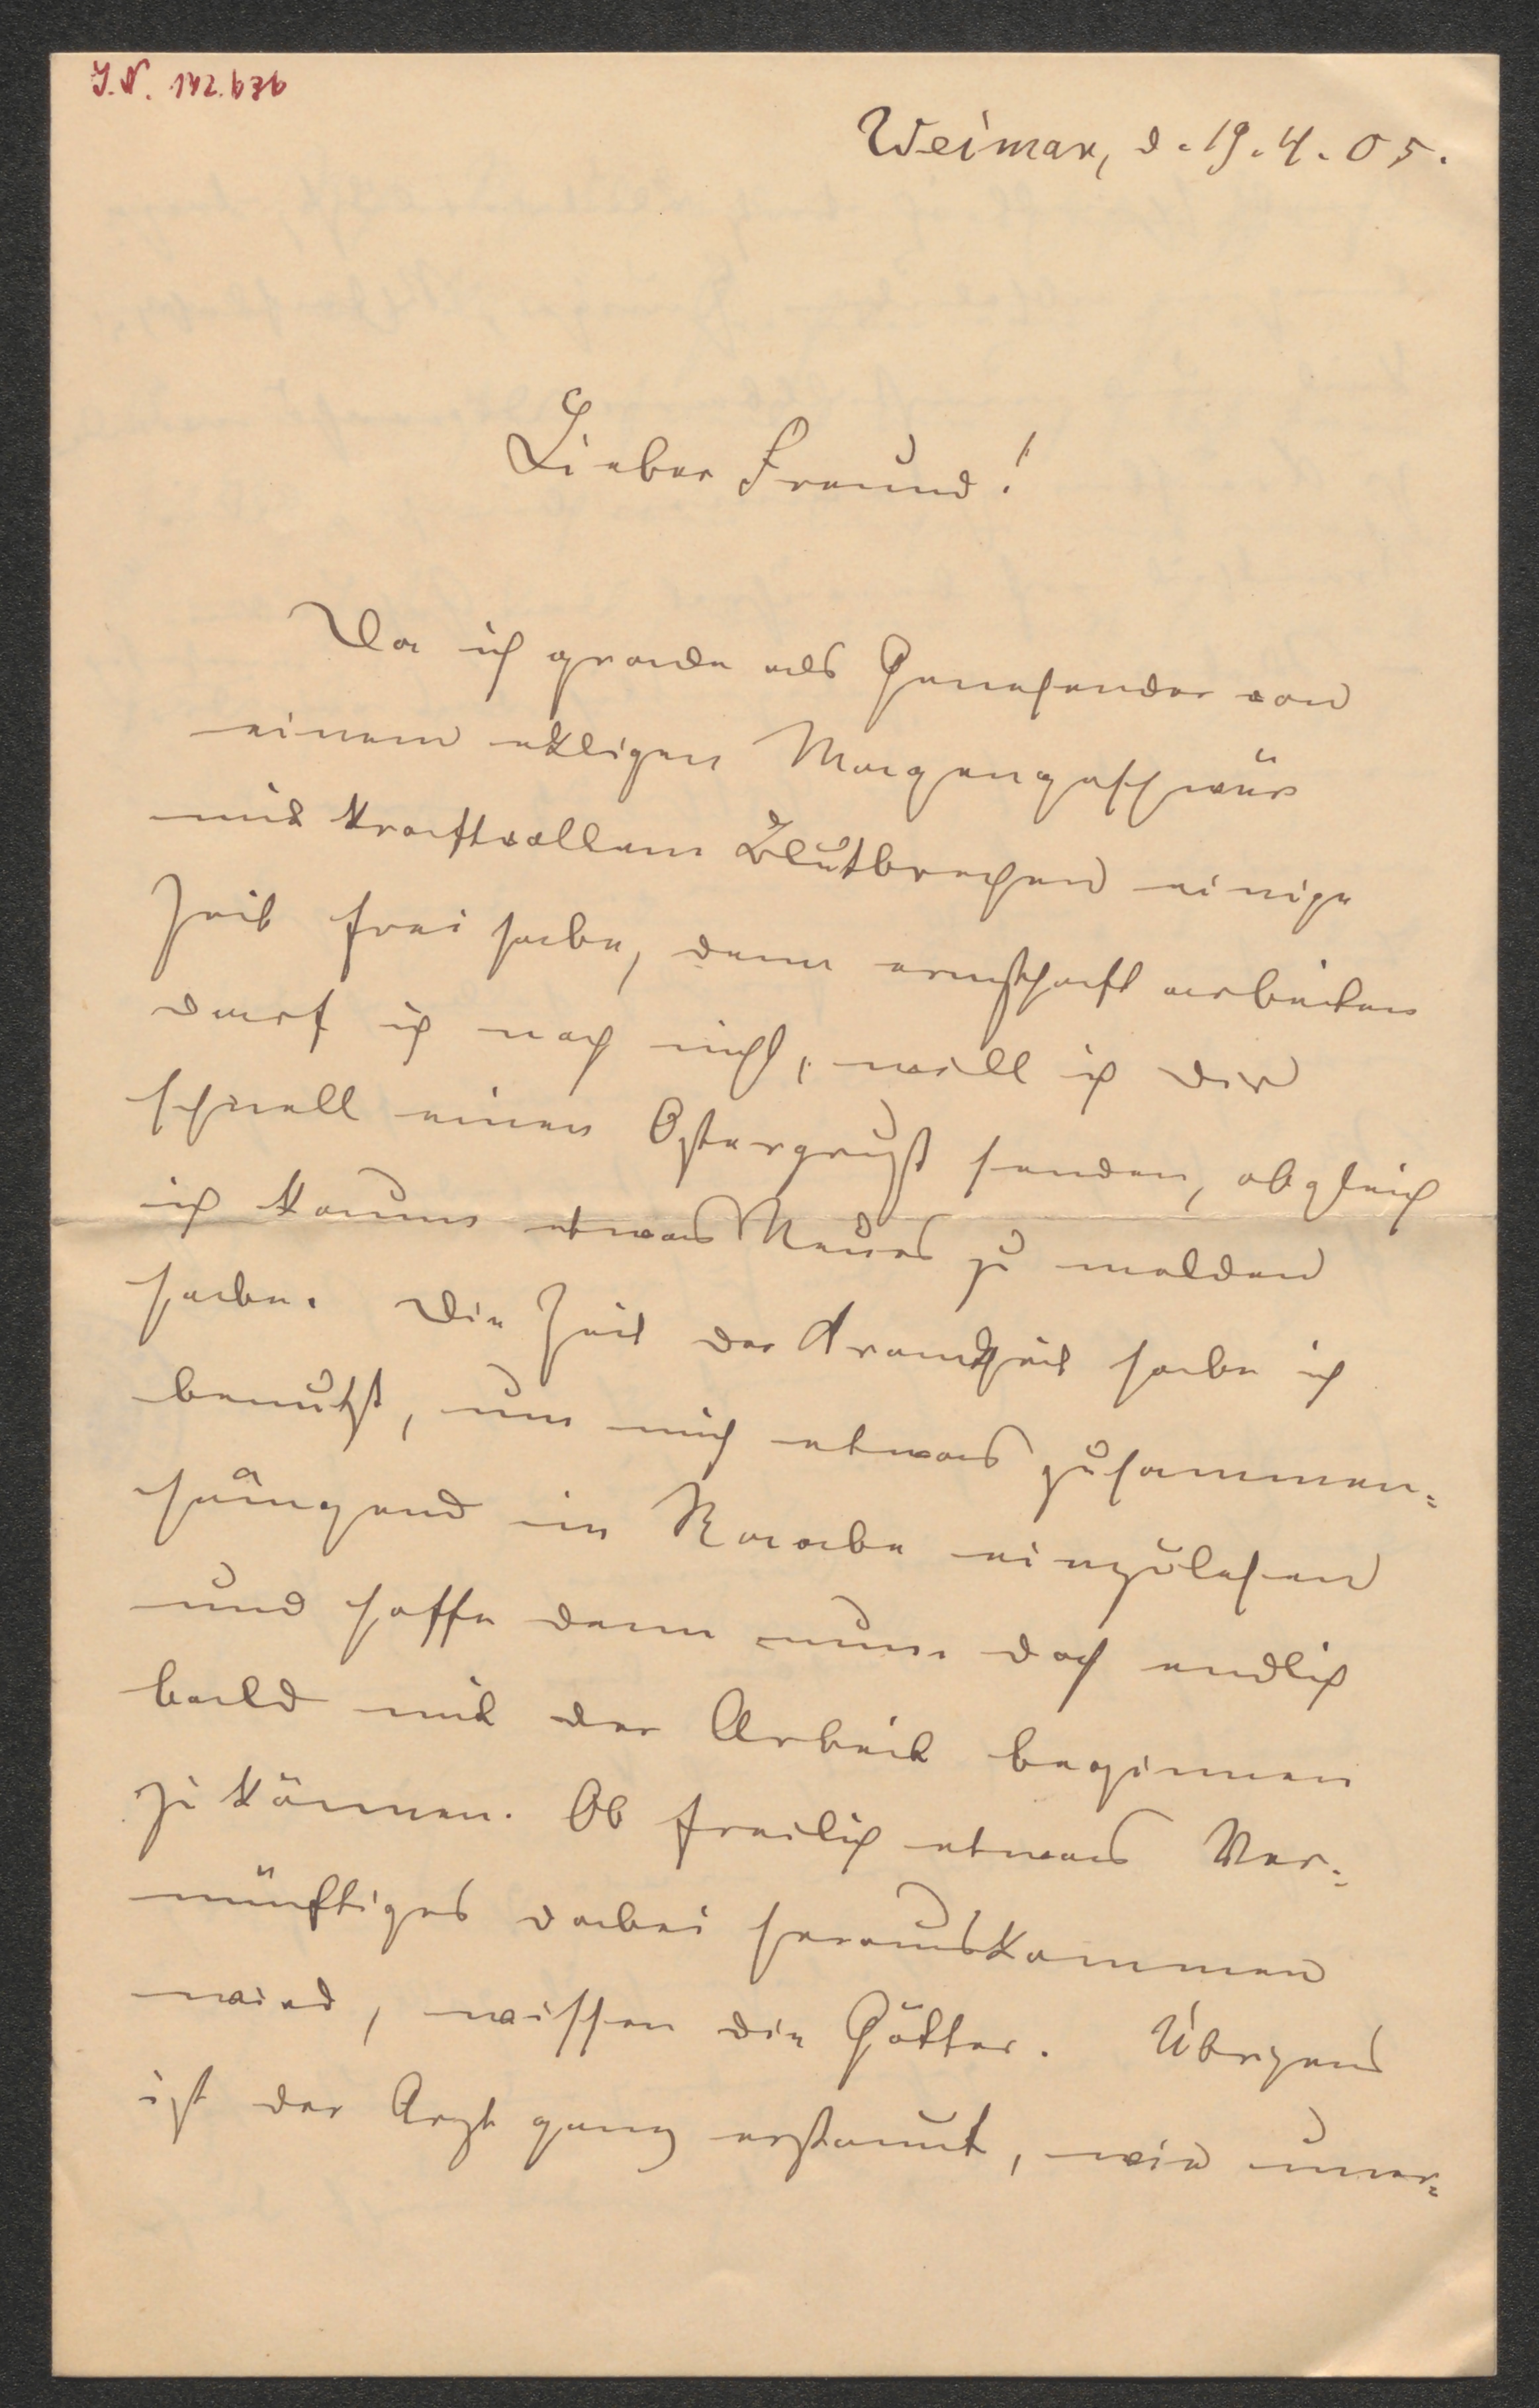 J.N. 142.676
Weimar, d. 19.4.05.
Lieber Freund!
Da ich grade als Genesender von
einem ekligen Magengeschwür
mit kraftvollem Blutbrechen einige
Zeit frei habe, denn ernsthaft arbeiten
darf ich noch nicht, will ich Dir
schnell einen Ostergruß senden, obgleich
ich kaum etwas Neues zu melden
habe. Die Zeit der Krankheit habe ich
benutzt, um mich etwas zusammen=
hängend in Raabe einzulesen
und hoffe denn nun doch endlich
bald mit der Arbeit beginnen
zu können. Ob freilich etwas Ver=
nünftiges dabei herauskommen
wird, wissen die Götter. Übrigens
ist der Arzt ganz erstaunt, wie uner=